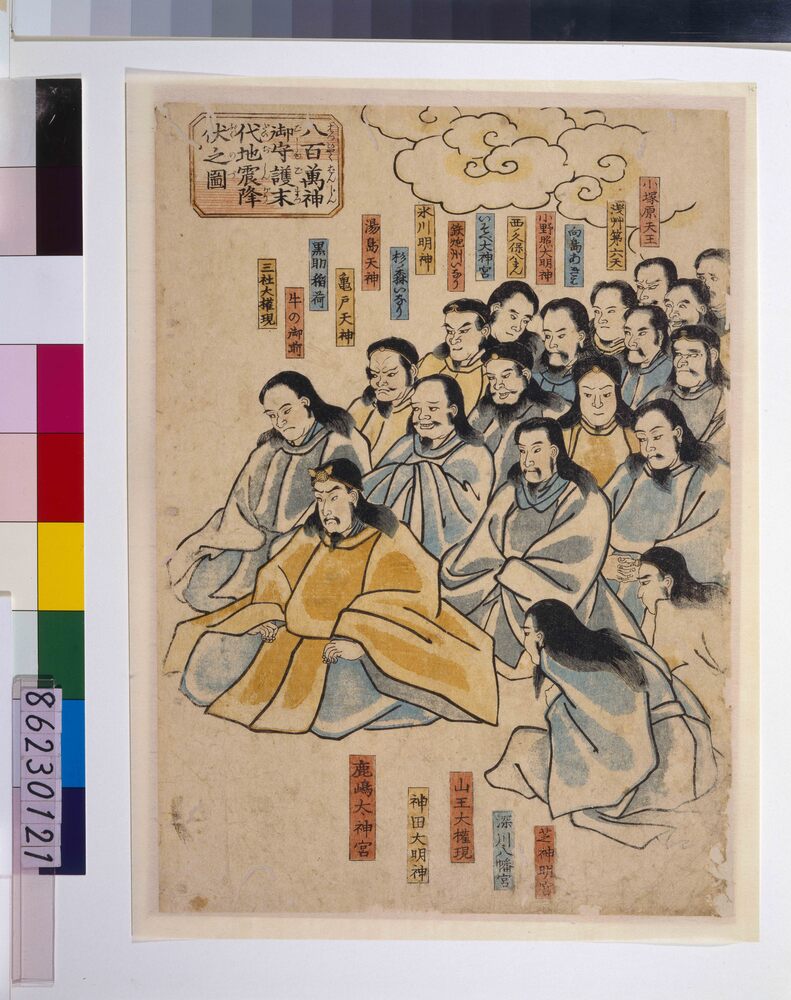 八百萬神
御守護末
代地震降
伏之圖
小塚原天王
浅艸第六天
向島あきは
小野照大明神
西久保八まん
いそべ大神宮
鉄炮洲いなり
氷川明神
杉の森いなり
湯島天神
亀戸天神
黒助稲荷
牛の御前
三社大權現
鹿嶋大神宮
神田大明神
山王大權現
深川八幡宮
芝神明宮
86230121